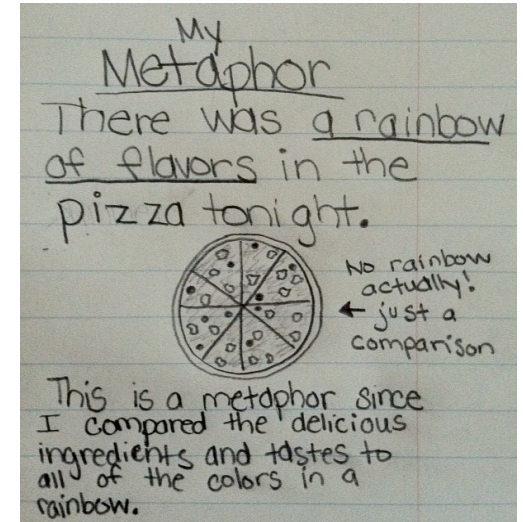 My
Metaphor
There was a rainbow
of flavors in the
pizza tonight.
No rainbow
actually!
← just a
comparison
This is a metaphor since
I compared the delicious
ingredients and tastes to
all of the colors in a
rainbow.